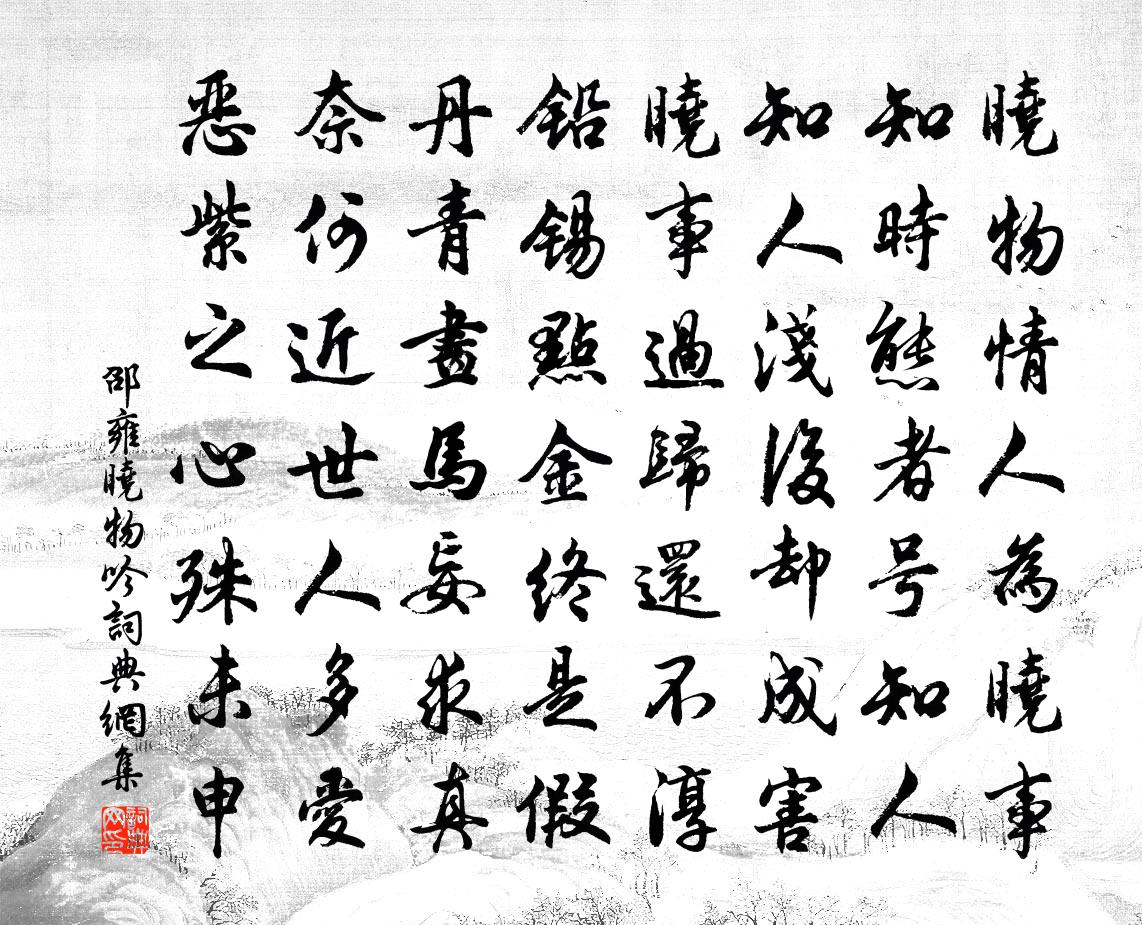 曉物情人為曉事
知時態者号知人
知人淺後却成害
曉事過歸還不淳
鉛錫點金終是假
丹青畫馬妄求真
奈何近世人多愛
惡紫之心殊未申
邵雍曉物吟詞典網集